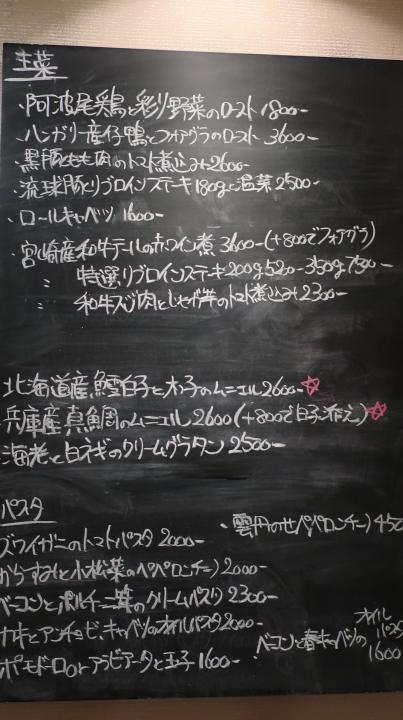 主菜
・阿波尾鶏と彩り野菜のロースト 1800-
・ハンガリー産仔鴨とフォアグラのロースト 3600-
・黒豚もも肉のトマト煮込み 2600-
・琉球豚リブロインステーキ180gと温菜 2500-
・ロールキャベツ 1600-
・宮崎産和牛テールの赤ワイン煮 3600-(+800でフォアグラ)
〃 特選リブロインステーキ200g 5200- 350g 7500-
〃 和牛スジ肉とじゃが芋のトマト煮込み 2300-
北海道産鱈白子と木の子のムニエル 2600-☆
兵庫産真鯛のムニエル 2600(+800で白子添え)☆
海老と白ネギのクリームグラタン 2500-
パスタ
・雲丹のせペペロンチーノ 450
ズワイガニのトマトパスタ 2000-
からすみと小松菜のペペロンチーノ 2000-
ベーコンとポルチーニ茸のクリームパスタ 2300-
カキとアンチョビ、キャベツのオイルパスタ 2000-
・ベーコンと春キャベツのオイルパスタ 1600-
ポモドーロとアラビアータと玉子 1600-